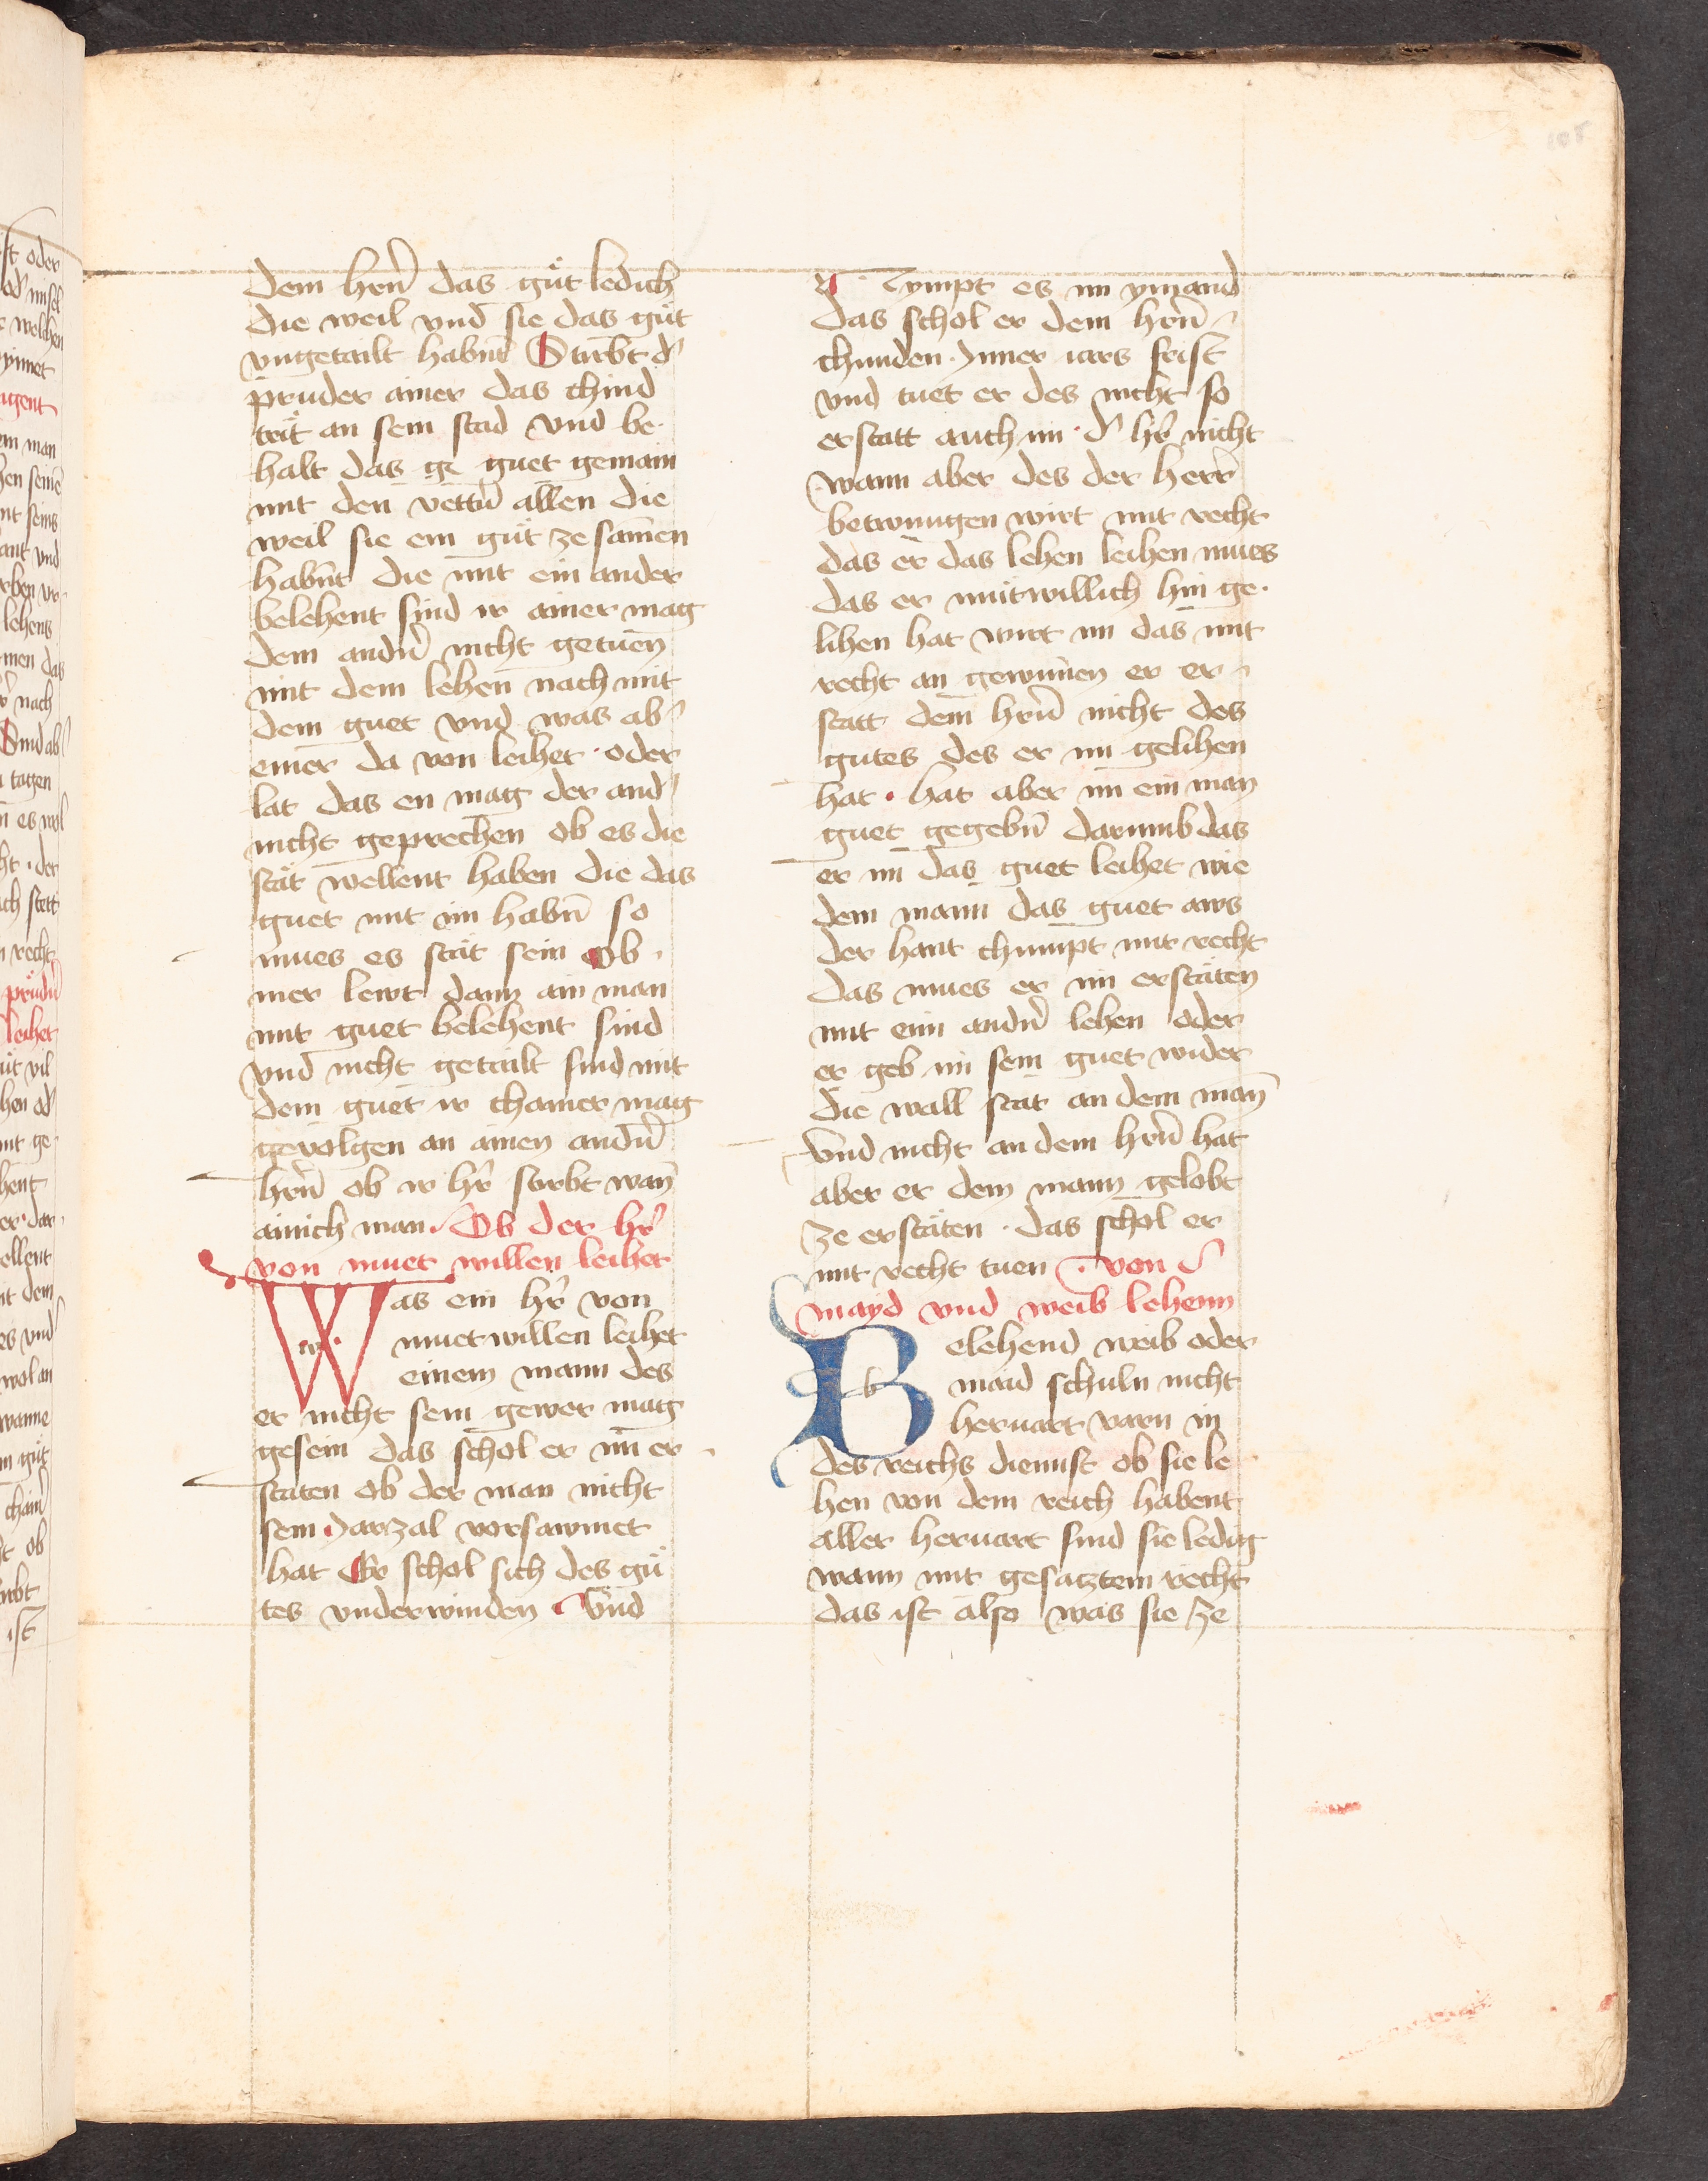 dem hrn̄ das guͤt ledich
die weil vnd sie das guͤt
vngetailt habnt Stirbt d͛
pruder ainer das chind
trit an sein stad vnd be·
halt das ge guet gemain
mit den vettn̄ allen die
weil sie ein guͤt ze samen
habnt die mit ein ander
belehent sind ir ainer mag
dem andn̄ nicht getuen
mit dem lehen nach mit
dem guet vnd was ab͛
einer da von leihet · oder
lat das en mag der and͛
nicht geprechen ob es die
staͤt wellent haben die das
guet mit im habn̄ so
mues es staͤt sein Ob ·
mer lewt dann ain man
mit guet belehent sind
vnd nicht getailt sind mit
dem guet ir chainer mag
gevolgen an ainen andn̄
hrn̄ ob ir hr̄ stirbt wan̄
ainich man · Ob der hr̄
von muet willen leihet
Was ein hr̄ von
muetwillen leihet
einem mann des
er nicht sein gewer mag
gesein das schol er im er ·
staten ob der man nicht
sein Jarzal vorsawmet
hat Er schol sich des guͤ
tes vnderwinden · Vnd
Nympt es im ymand
das schol er dem hrn̄
chunden · Inner iars frist
vnd tuet er des nicht so
erstatt auch im · d͛ hr̄ nicht
wann aber des der herr̄
betwungen wirt mit recht
das er das lehen leihen mues
das er mutwillich hin ge·
lihen hat wirt im das mit
recht an gewunnen er er
statt dem hrn̄ nicht des
gutes des er im gelihen
hat · hat aber im ein man
guet gegebn̄ darumb das
er im das guet leihet wie
dem mann das guet aws
der hant chumpt mit recht
das mues er im erstaͤten
mit eim andn̄ lehen oder
er geb im sein guet wider
die wall stat an dem man̄
vnd nicht an dem hrn̄ hat
aber er dem mann gelobt
ze erstaͤten · das schol er
mit recht tuen · von
mayd vnd weib lehenn
Belehend weib oder
maid schuln nicht
heruart varn in
des reichs diennst ob sie le
hen von dem reich habent
aller heruart sind sie ledig
wann mit gesatztem recht
das ist also was sie ze